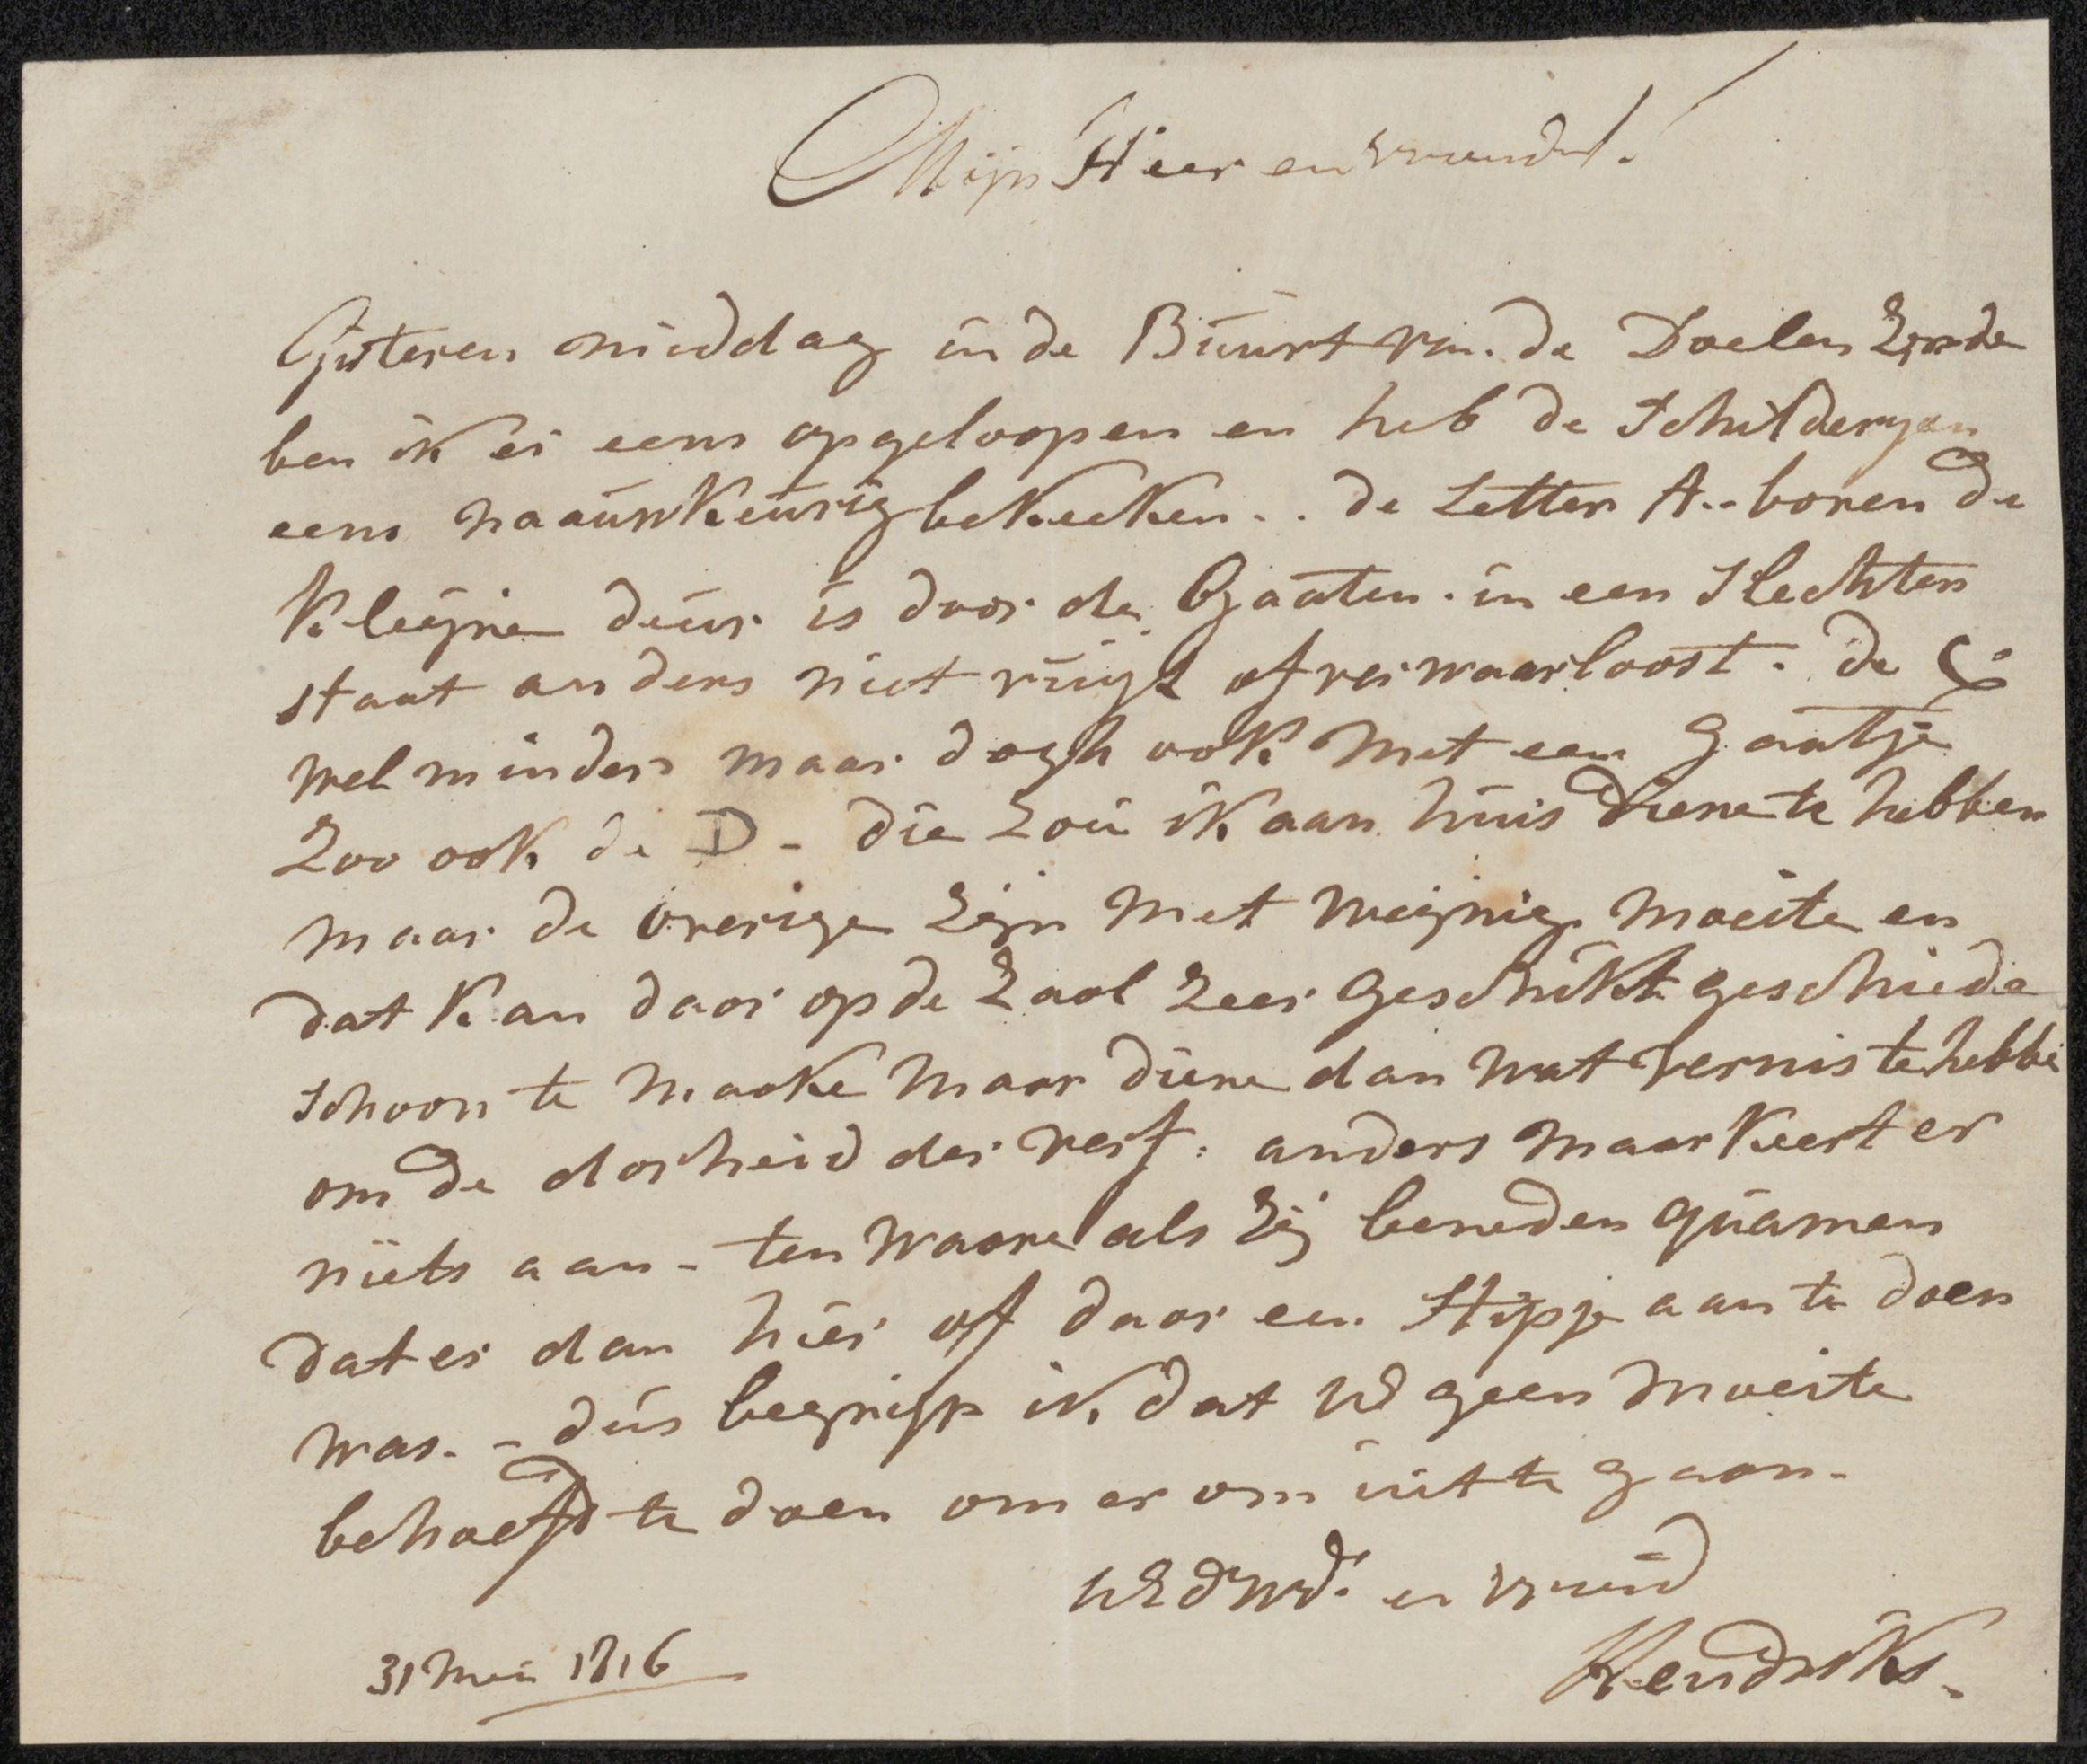 Mijn Heer en vriend!
Gisteren middag in de Buurt van de Doelen zynde
ben ik er eens opgeloopen en heb de Schilderyen
eens naauwkeurig bekeeken.. de Letter A.. boven de
kleyne deur is door de Gaaten in een slechten
staat anders niet vuyl of verwaarloost. de C
wel minder maar dogh ook met een gaatje
Zoo ook de D - die zou ik aan huis diene te hebben
maar de overige zijn met weijnig moeite en
dat kan daar op de zaal zeer geschikt geschiede
schoon te maake maar diene dan wat vernis te hebbe
om de dorheid der verf. anders maar keert er
niets aan - ten waare als zij beneden quamen
dat er dan hier of daar een Stipje aan te doen
was. - dus begrijp ik dat UE geen moeite
behoefd te doen om er om uit te gaan.
UEd Wd. en vriend
Hendriks.
31 Mei 1816